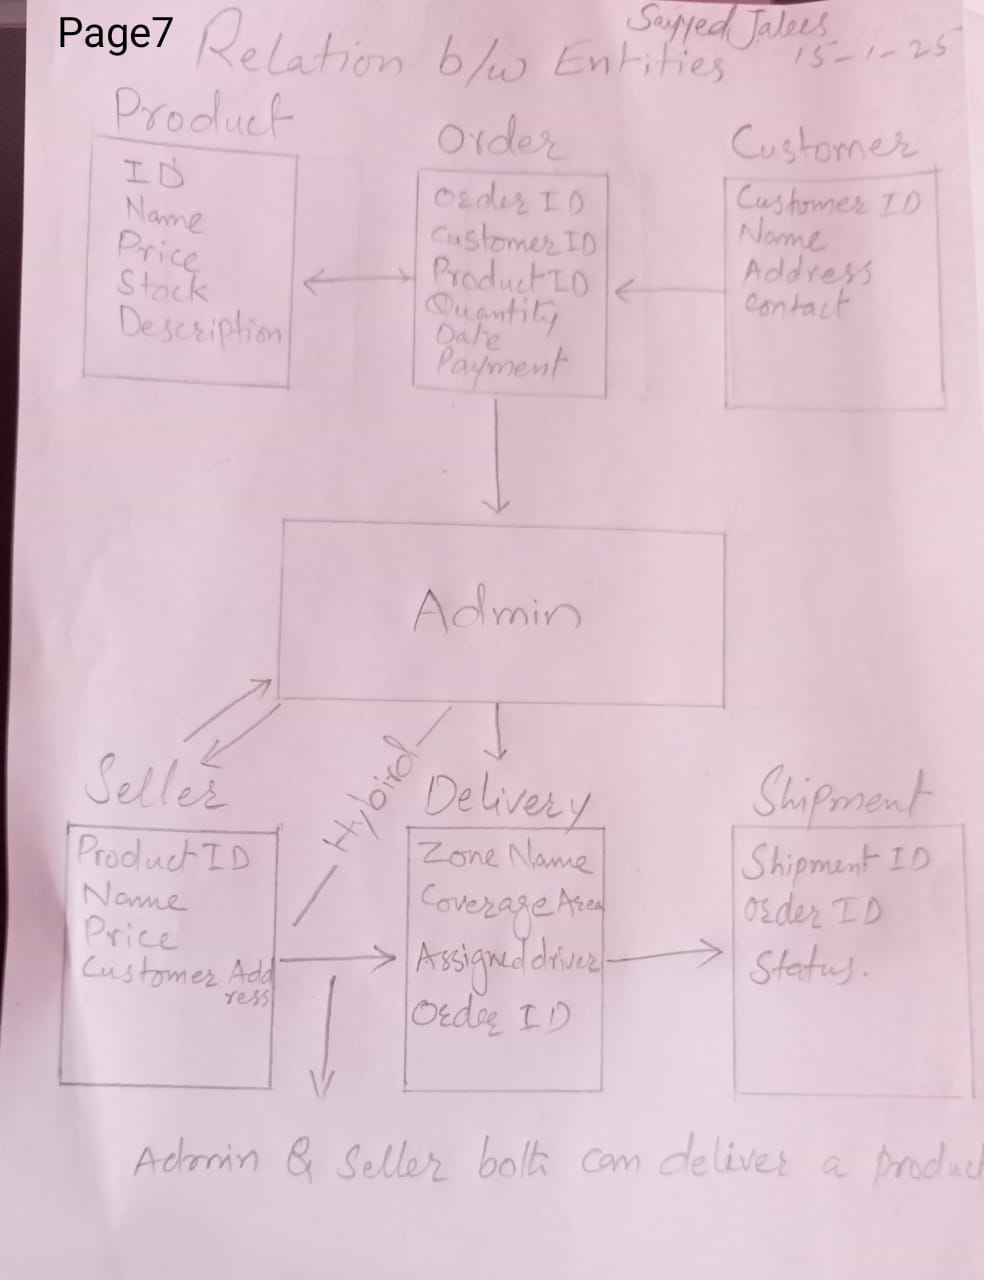 Page7
Sayyed Jalees
Relation b/w Entities 15-1-25
Product
ID
Name
Price
Stock
Description
Order
Order ID
Customer ID
Product ID
Quantity
Date
Payment
Customer
Customer ID
Name
Address
Contact
Admin
Hybird
Seller
Product ID
Name
Price
Customer Add
ress
Delivery
Zone Name
Coverage Area
Assigned driver
Order ID
Shipment
Shipment ID
Order ID
Status.
Admin & Seller both can deliver a product